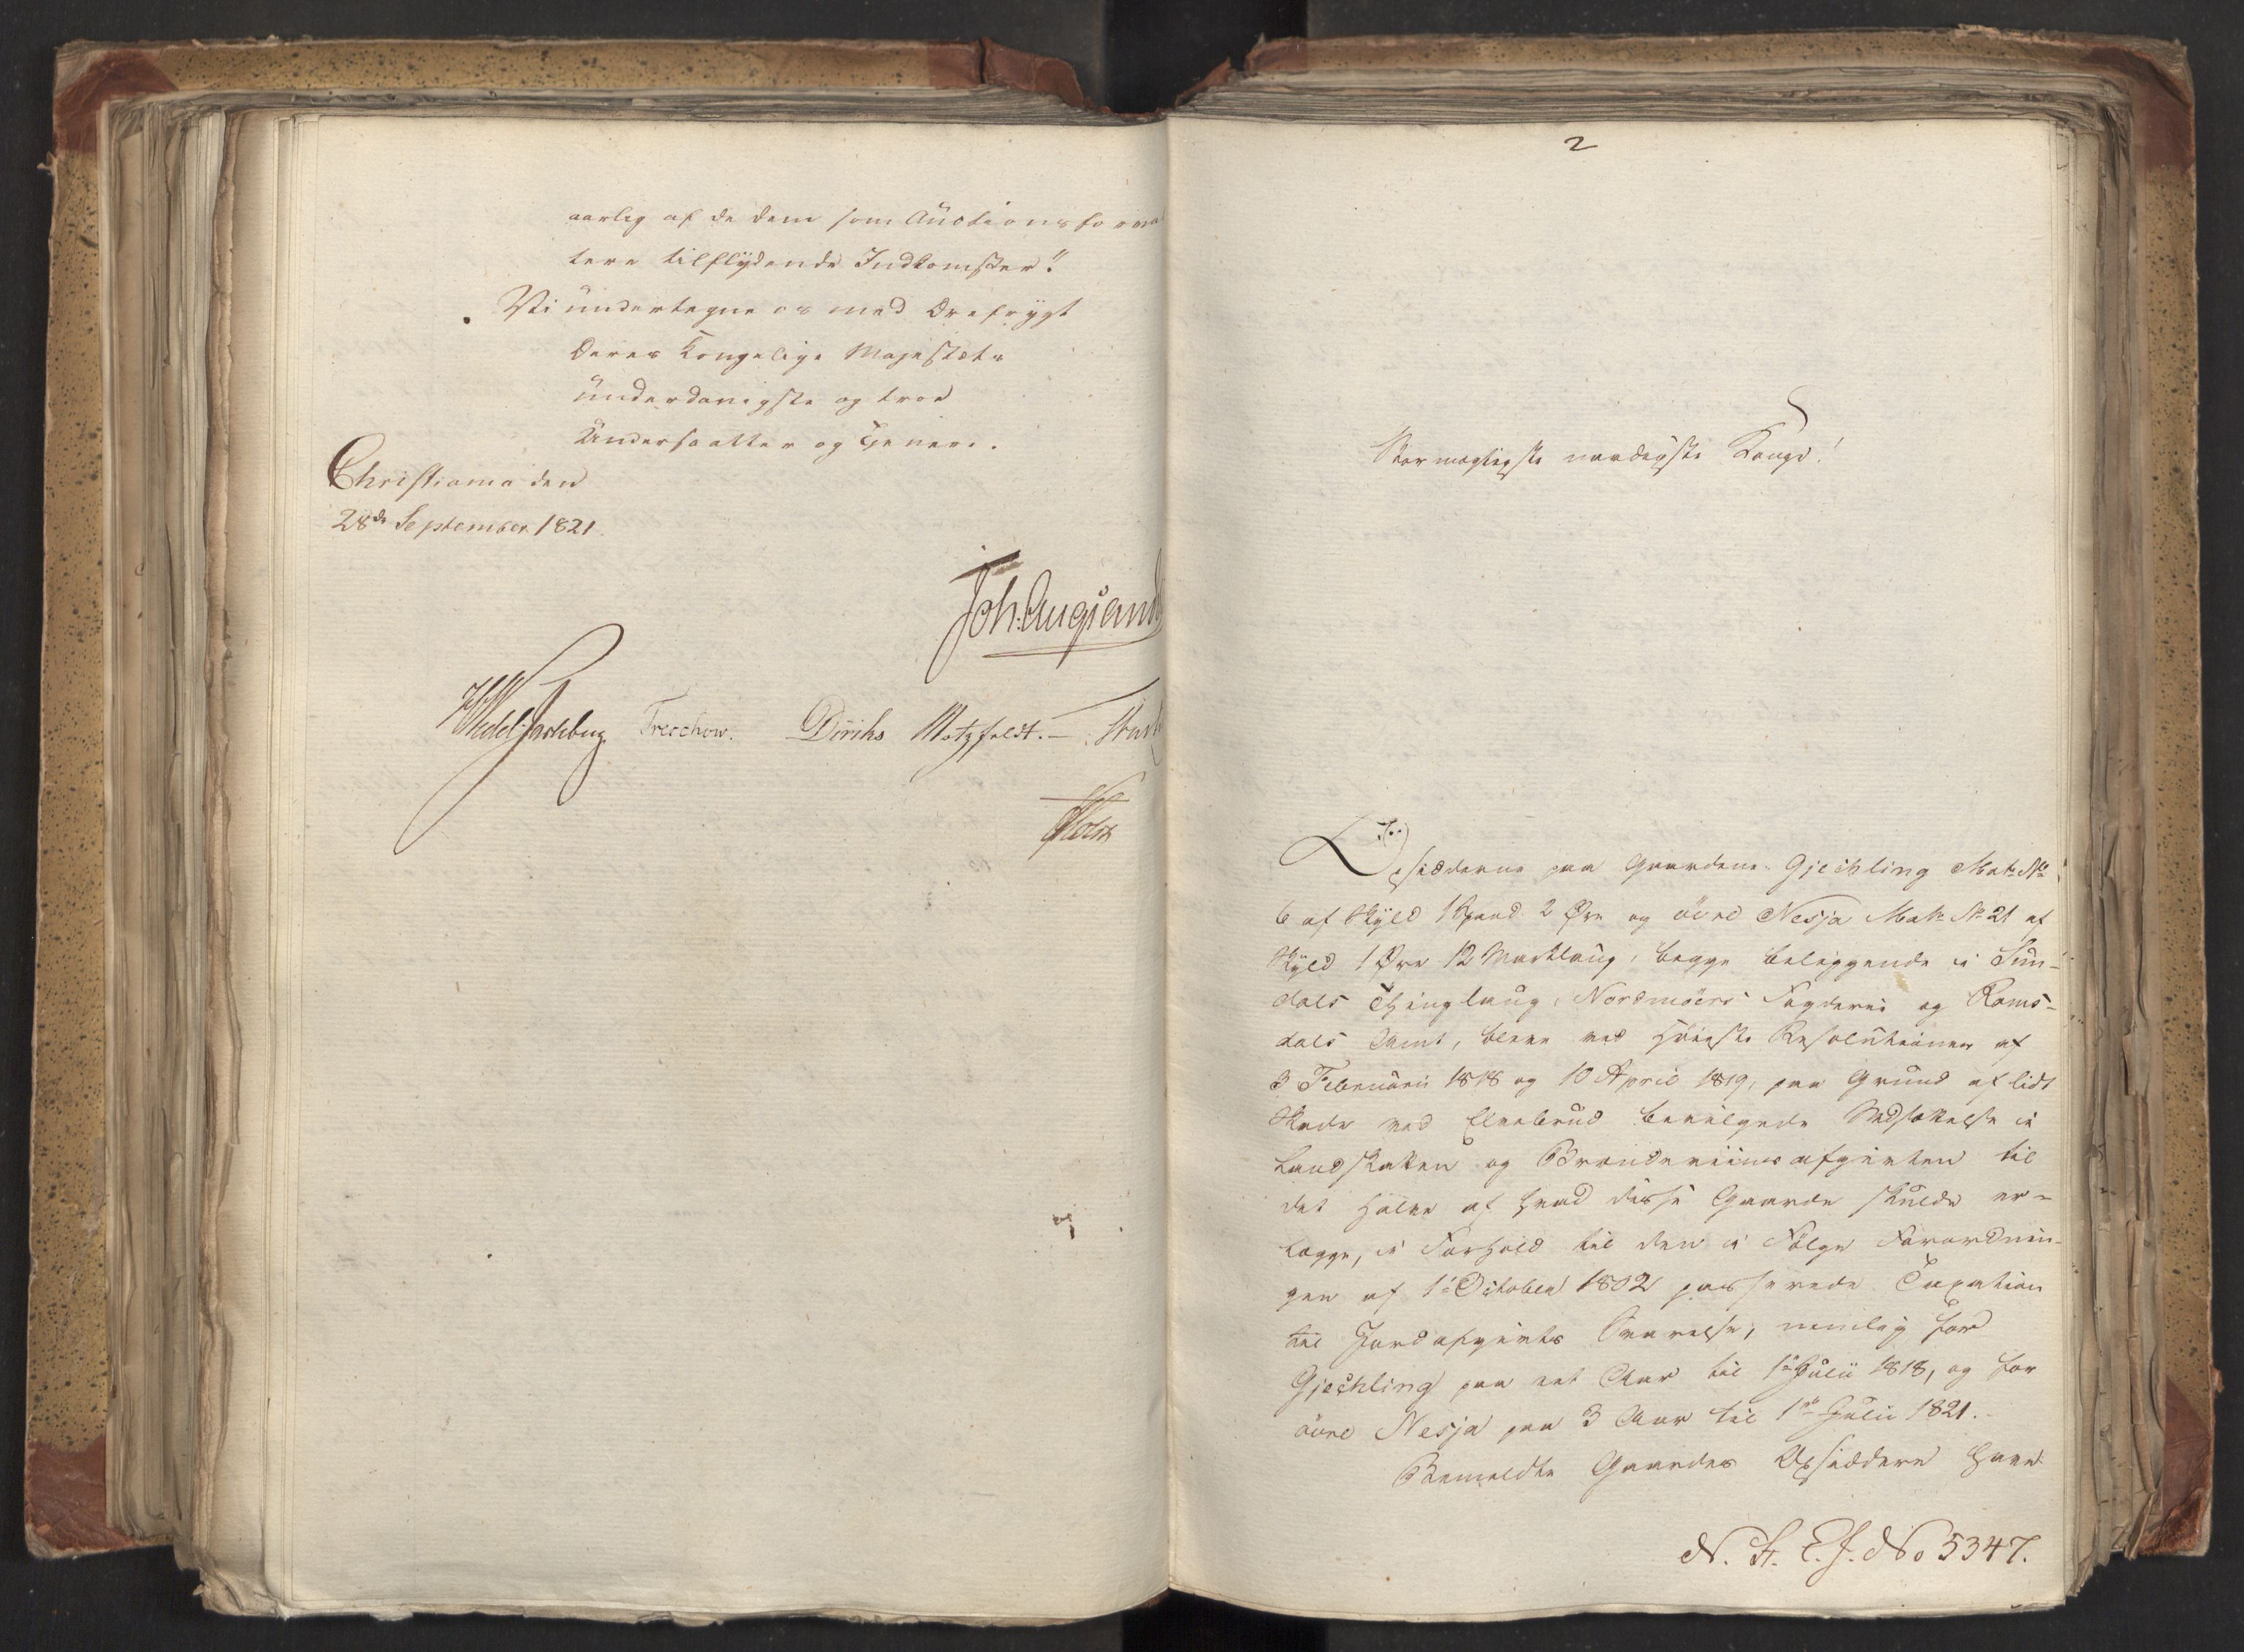 aarlig af de dem som Auctionsforval
tere tilflydende Indkomster."
Vi undertegne os med Ærefrygt
Deres Kongelige Majestæts
underdanigste og troe
Undersaatter og Tjenere.
Christiania den
28de September 1821.
Joh. Aug: Sand
HWedel Jarlsberg Treschow. Diriks Motzfeldt.
Holst
2
Stormægtigste naadigste Konge!
Opsidderne paa Gaardene Gjeshling Mat: No
6 af Skyld 1 Spand 2 Øre og övre Nesja Mat: No 21 af
Skyld 1 Øre 12 Marklaug, begge beliggende i Sun-
dals Thinglaug, Nordmöers Fogderie og Roms-
dals Amt, bleve ved Høieste Resolutioner af
3 Februarii 1818 og 10 April 1819, paa Grund af lidt
Skade ved Elvebrud bevilgede Nedsættelse i
Landskatten og Brændeviinsafgivten til
det halve af hvad disse Gaarde skulde er-
lægge, i Forhold til den i Følge Forordnin-
gen af 1ste October 1802 passerede Taxation
til Jordafgivts Svarelse, nemlig for
Gjeshling paa eet Aar til 1ste Julii 1818, og for
övre Nesja paa 3 Aar til 1ste Julii 1821.
Bemeldte Gaardes Opsiddere have
N. St. E. J. No 5347.